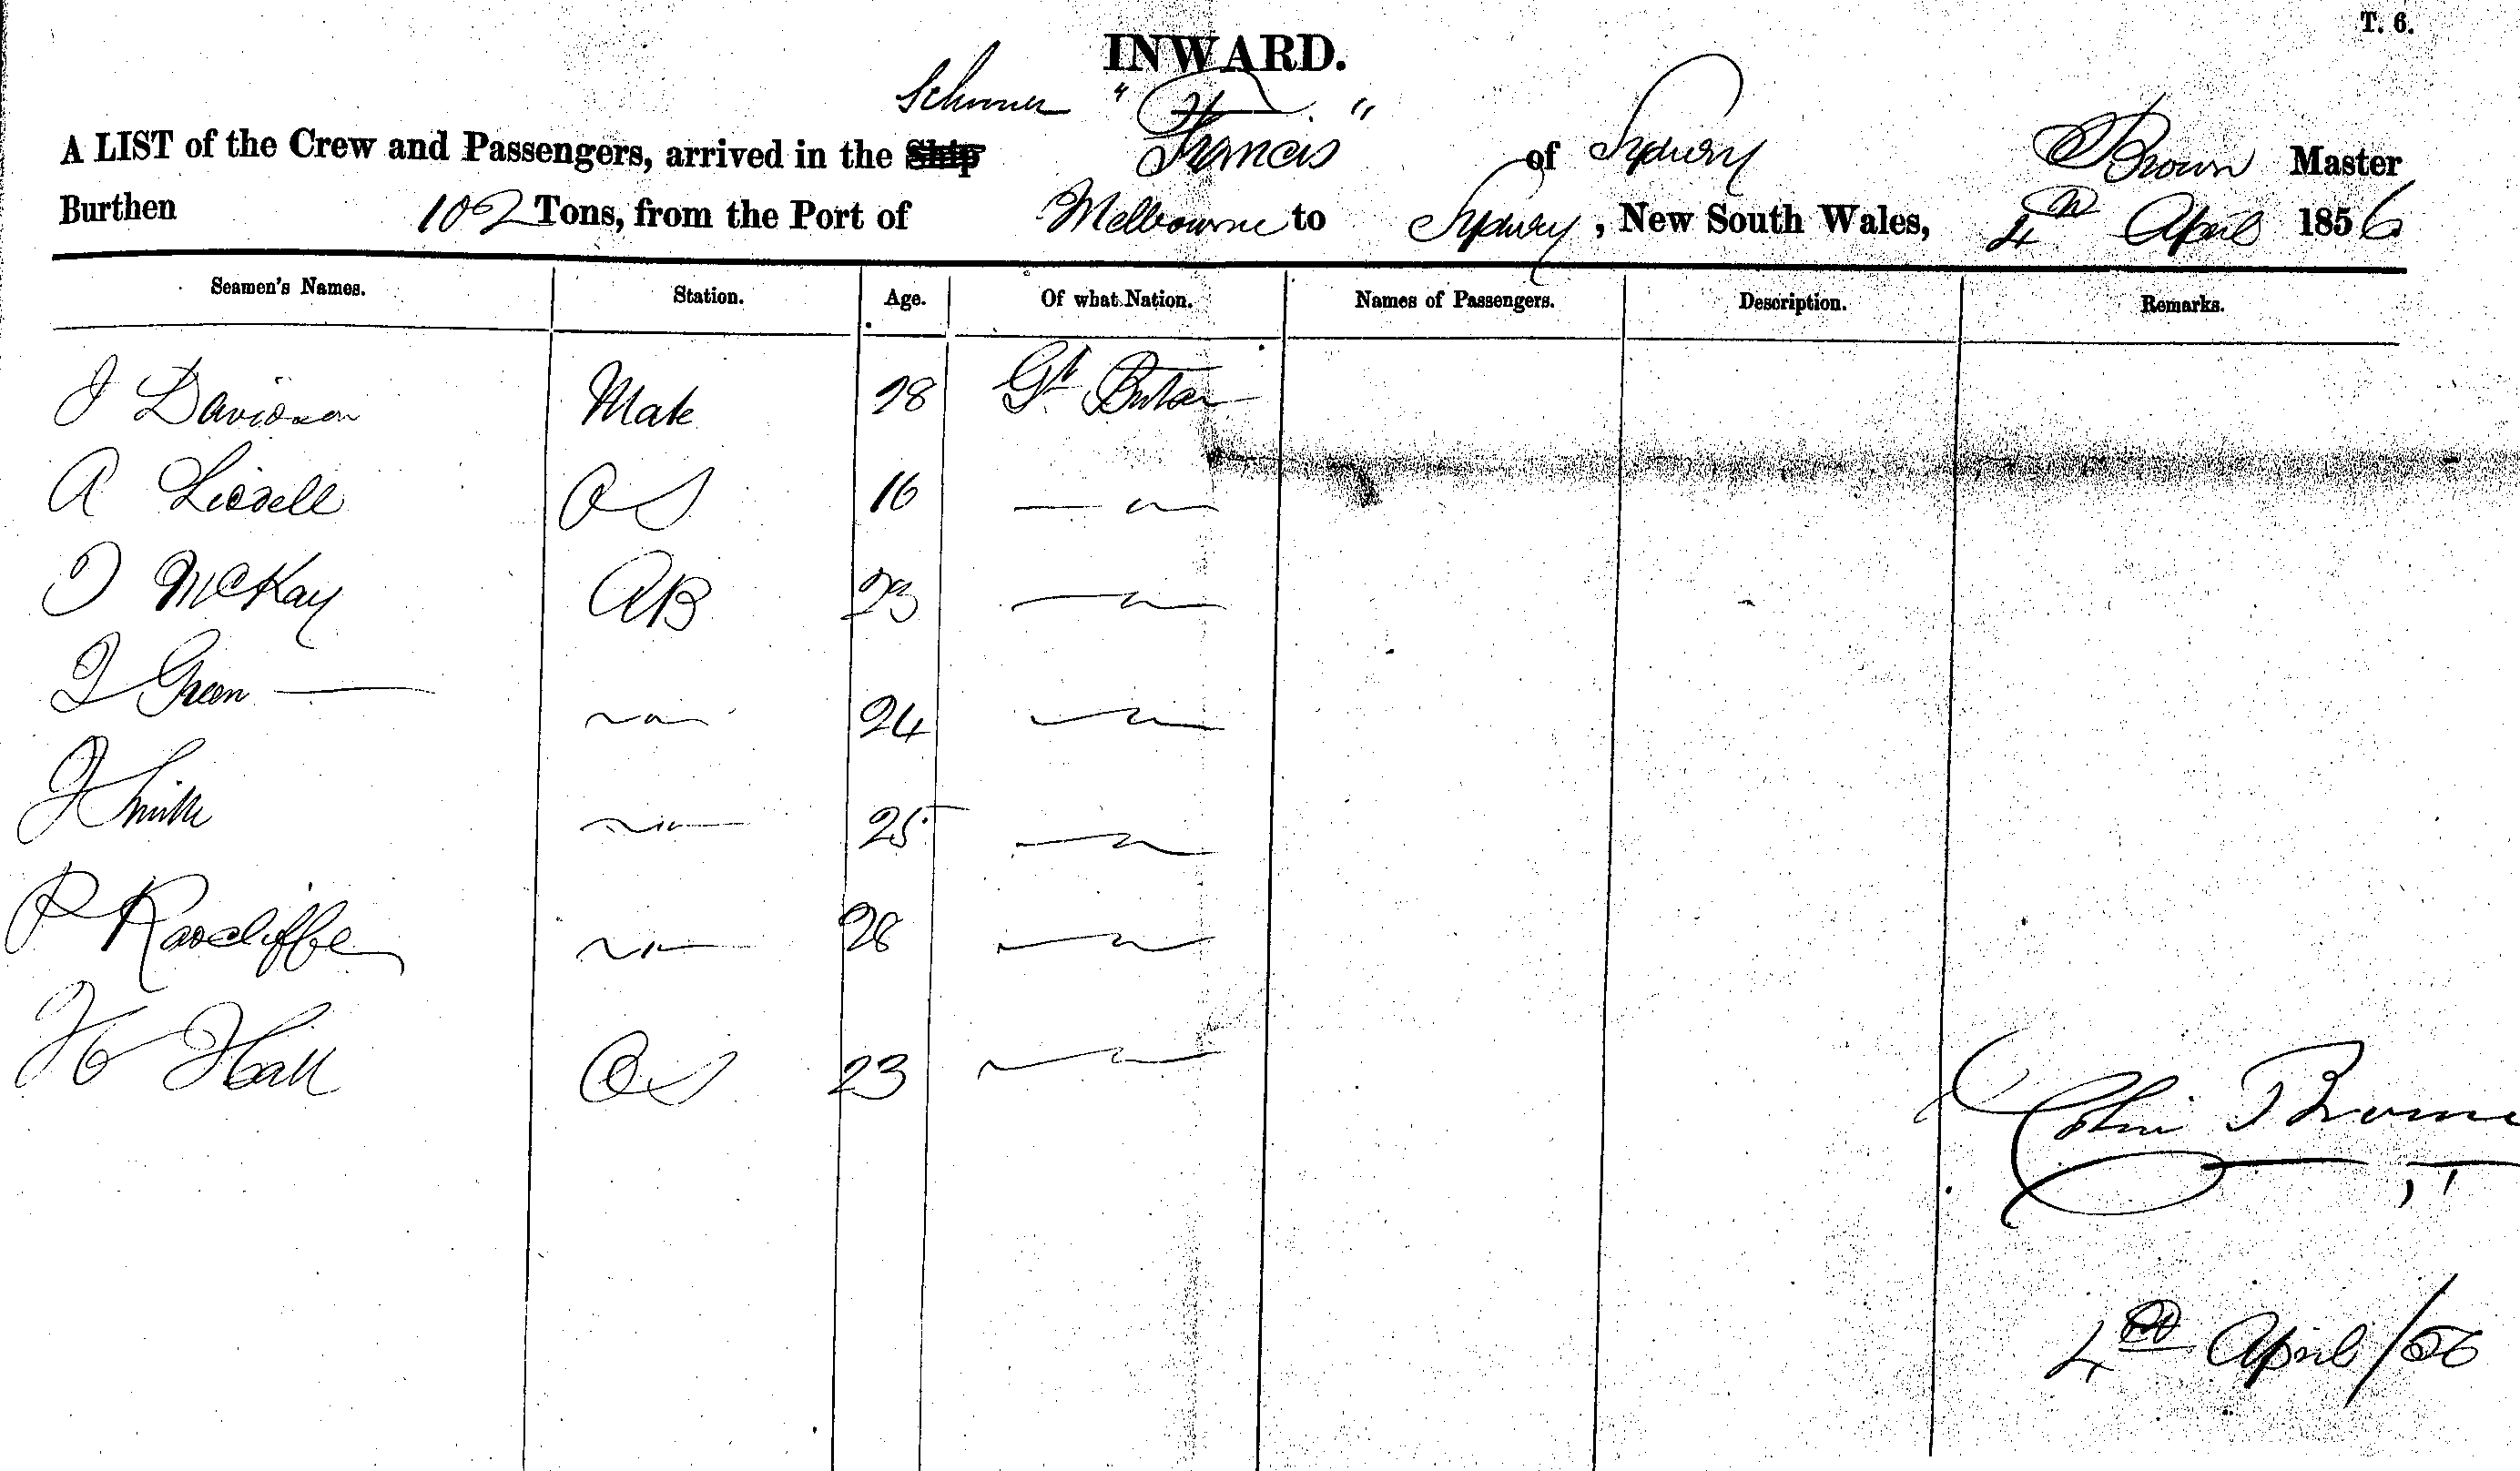 T. 6.
INWARD.
Schooner "Francis"
A LIST of the Crew and Passengers, arrived in the Ship of Sydney Brown Master
Burthen 102 Tons, from the Port of Melbourne to Sydney, New South Wales, 4th April 1856
Seamen's Names. Station. Age. Of what Nation. Names of Passengers. Description. Remarks.
J Davidson Mate 28 Gt Britain
A Liddell OS 16 — " —
J McKay AB 23 — " —
J Green — — " — 24 — " —
J Smith — " — 25 — " —
P Radcliffe — " — 28 — " —
H Hall OS 23 — " —
Colin Brown
4th April /56